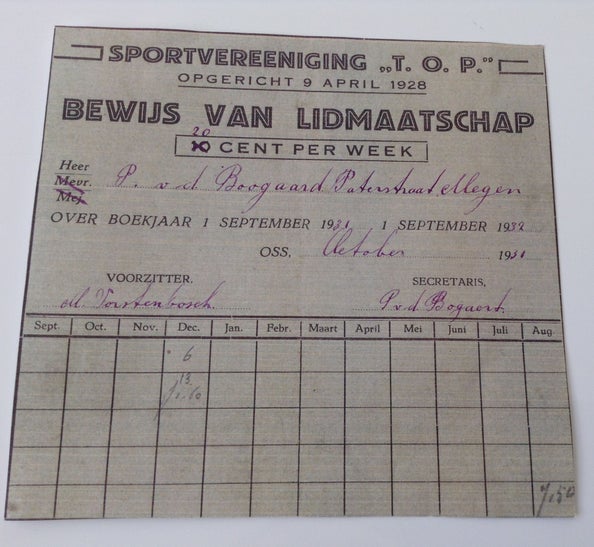 SPORTVEREENIGING „T. O. P.”
OPGERICHT 9 APRIL 1928
BEWIJS VAN LIDMAATSCHAP
20
CENT PER WEEK
Heer
Mevr. P. v d Boogaard Paterstraat Megen
Mej.
OVER BOEKJAAR 1 SEPTEMBER 1931 1 SEPTEMBER 1932
OSS, October 1931
VOORZITTER. SECRETARIS,
M. Vorstenbosch. P. v d Bogaert.
Sept. Oct. Nov. Dec. Jan. Febr. Maart April Mei Juni Juli Aug.
6
13